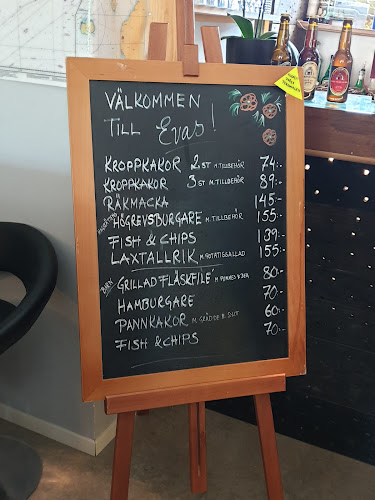 VÄLKOMMEN
TILL Evas!
KROPPKAKOR 2 ST M. TILLBEHÖR 74:-
KROPPKAKOR 3 ST M. TILLBEHÖR 89:-
RÄKMACKA 145:-
HÖGREVSBURGARE M. TILLBEHÖR 155:-
FISH & CHIPS 139:-
LAXTALLRIK M. POTATISSALLAD 155:-
BARN GRILLAD FLÄSKFILÉ 80:-
HAMBURGARE 70:-
PANNKAKOR M. GRÄDDE & SYLT 60:-
FISH & CHIPS 70:-